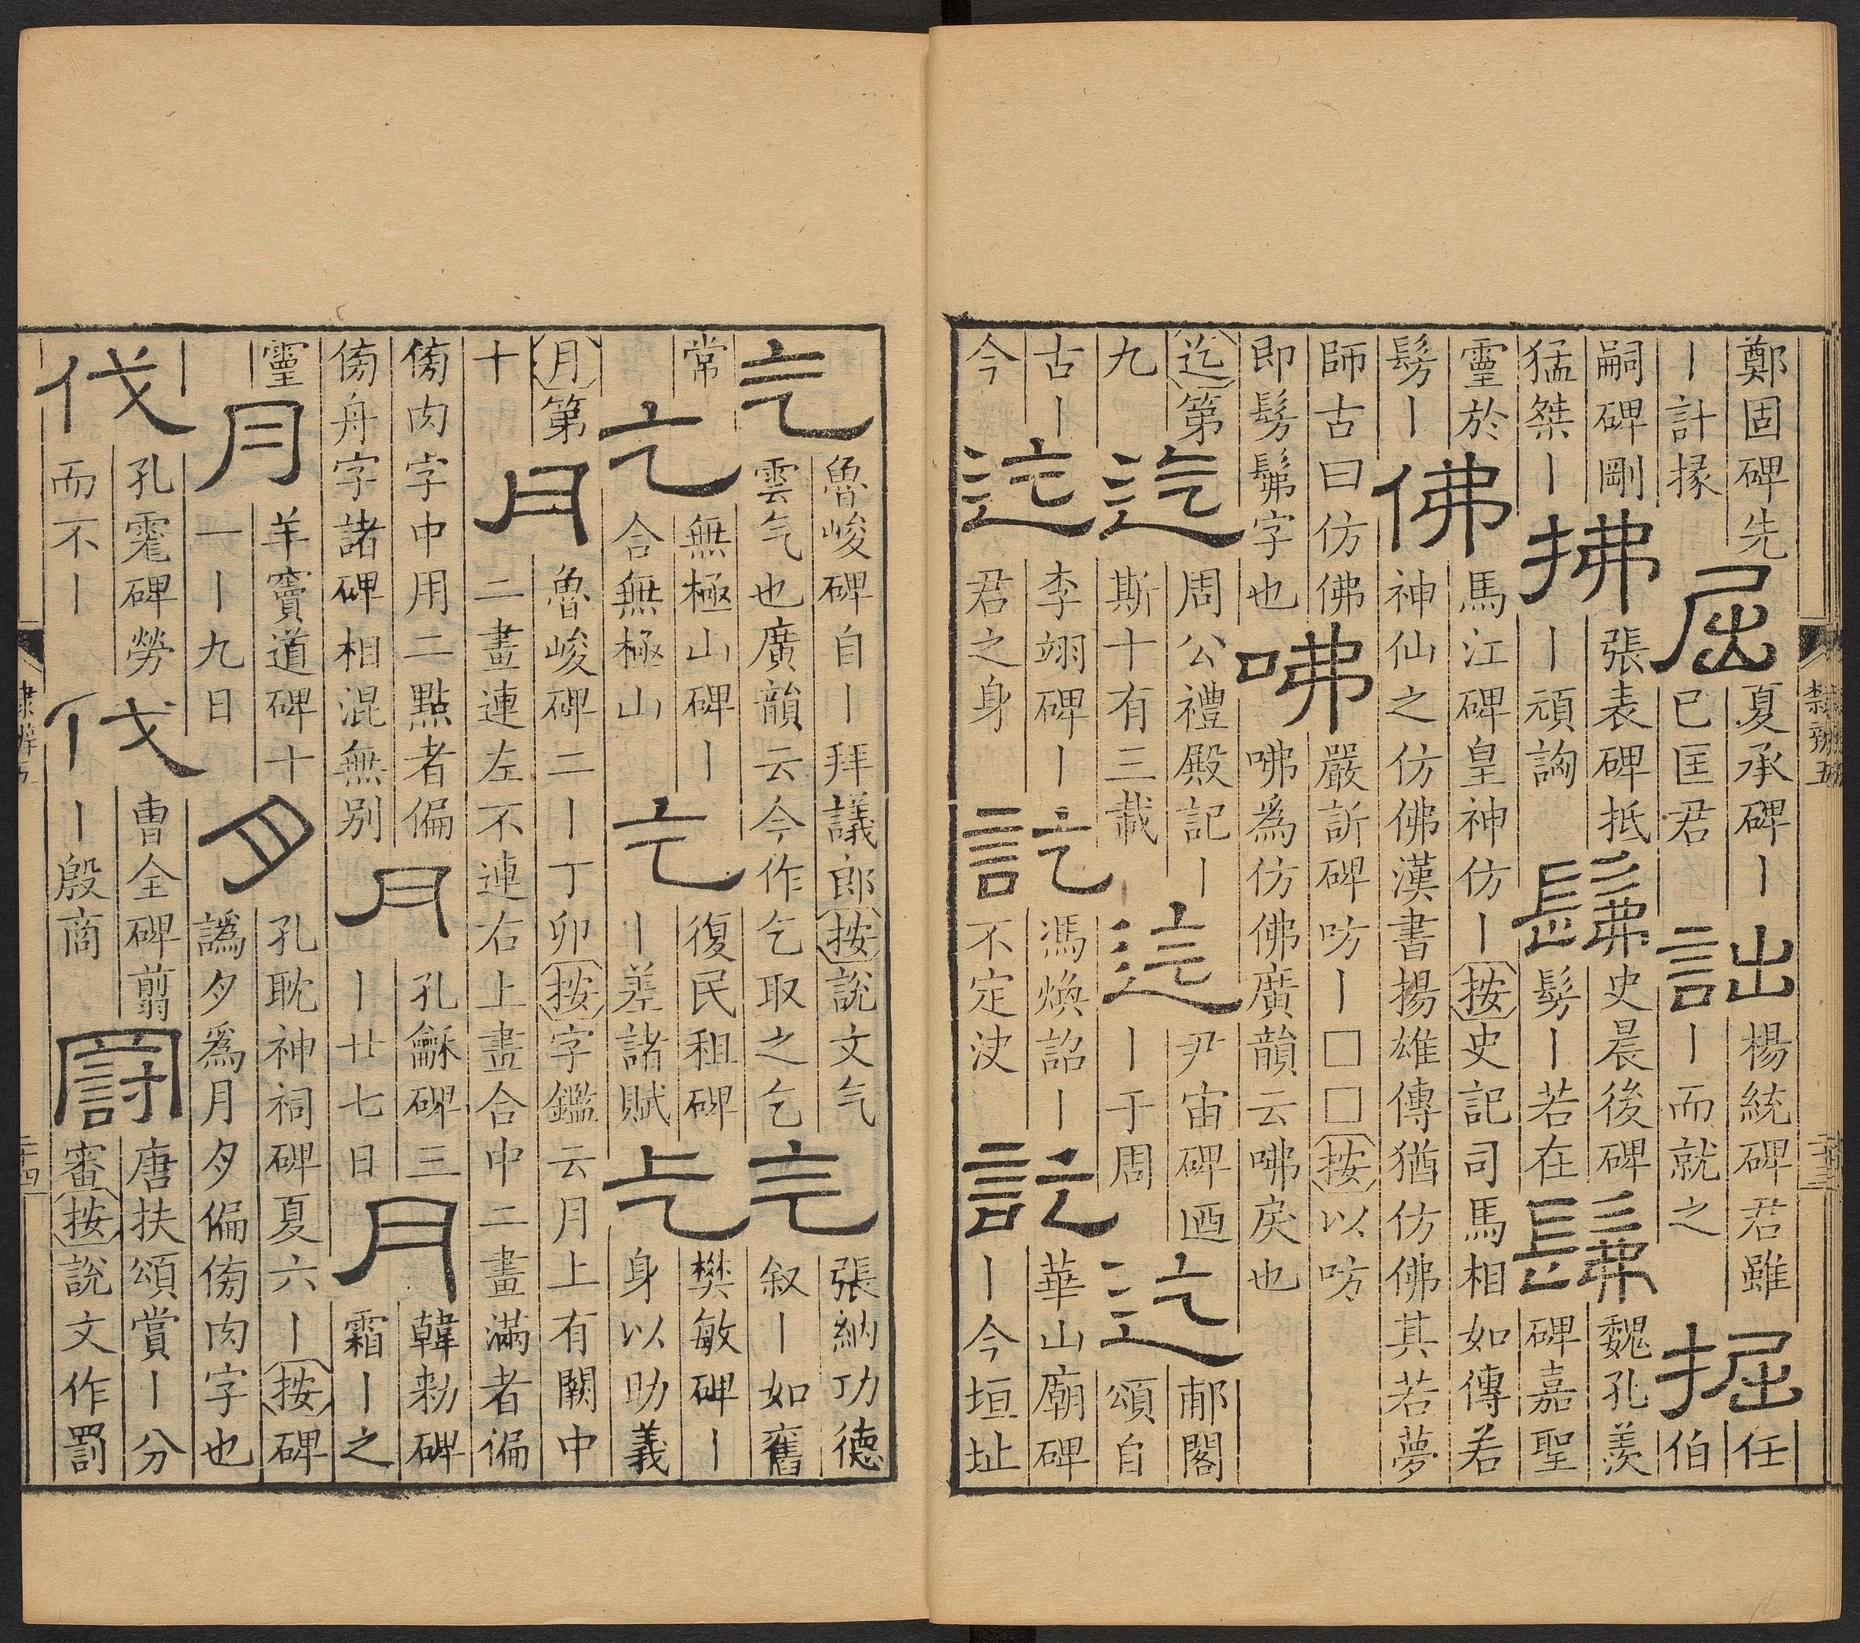 鄭固碑先｜計掾 屈 夏承碑｜巳匡君 詘 楊統碑君雖｜而就之 掘 任伯
嗣碑剛猛桀｜ 拂 張表碑抵｜頑訩 髴 史晨後碑髣｜若在 髴 魏孔羨碑嘉聖
靈於髣｜ 佛 馬江碑皇神仿｜按史記司馬相如傳若神仙之仿佛漢書揚雄傳猶仿佛其若夢
師古曰仿佛即髣髴字也 咈 嚴訢碑㕫｜□□按以㕫咈爲仿佛廣韻云咈戾也
迄第九 迄 周公禮殿記｜斯十有三載 迄 尹宙碑迺｜于周 迄 郙閣頌自
古｜今 迄 李翊碑｜君之身 訖 馮煥詔｜不定決 訖 華山廟碑｜今垣址
隸辨五 二十三
气 魯峻碑自｜拜議郎按說文气雲气也廣韻云今作乞取之乞 气 張納功德叙｜如舊
常 乞 無極山碑｜合無極山 乞 復民租碑｜差諸賦 乞 樊敏碑｜身以助義
月第十 月 魯峻碑二｜丁卯按字鑑云月上有闕中二畫連左不連右上畫合中二畫滿者偏
傍肉字中用二點者偏傍舟字諸碑相混無別 月 孔龢碑三｜廿七日 月 韓勑碑霜｜之
靈｜ 月 羊竇道碑十一｜九日 月 孔耽神祠碑夏六｜按碑譌夕爲月夕偏傍肉字也
伐 孔宙碑勞而不｜ 伐 曹全碑翦｜殷商 罰 唐扶頌賞｜分審按說文作罰
隸辨五 二十四